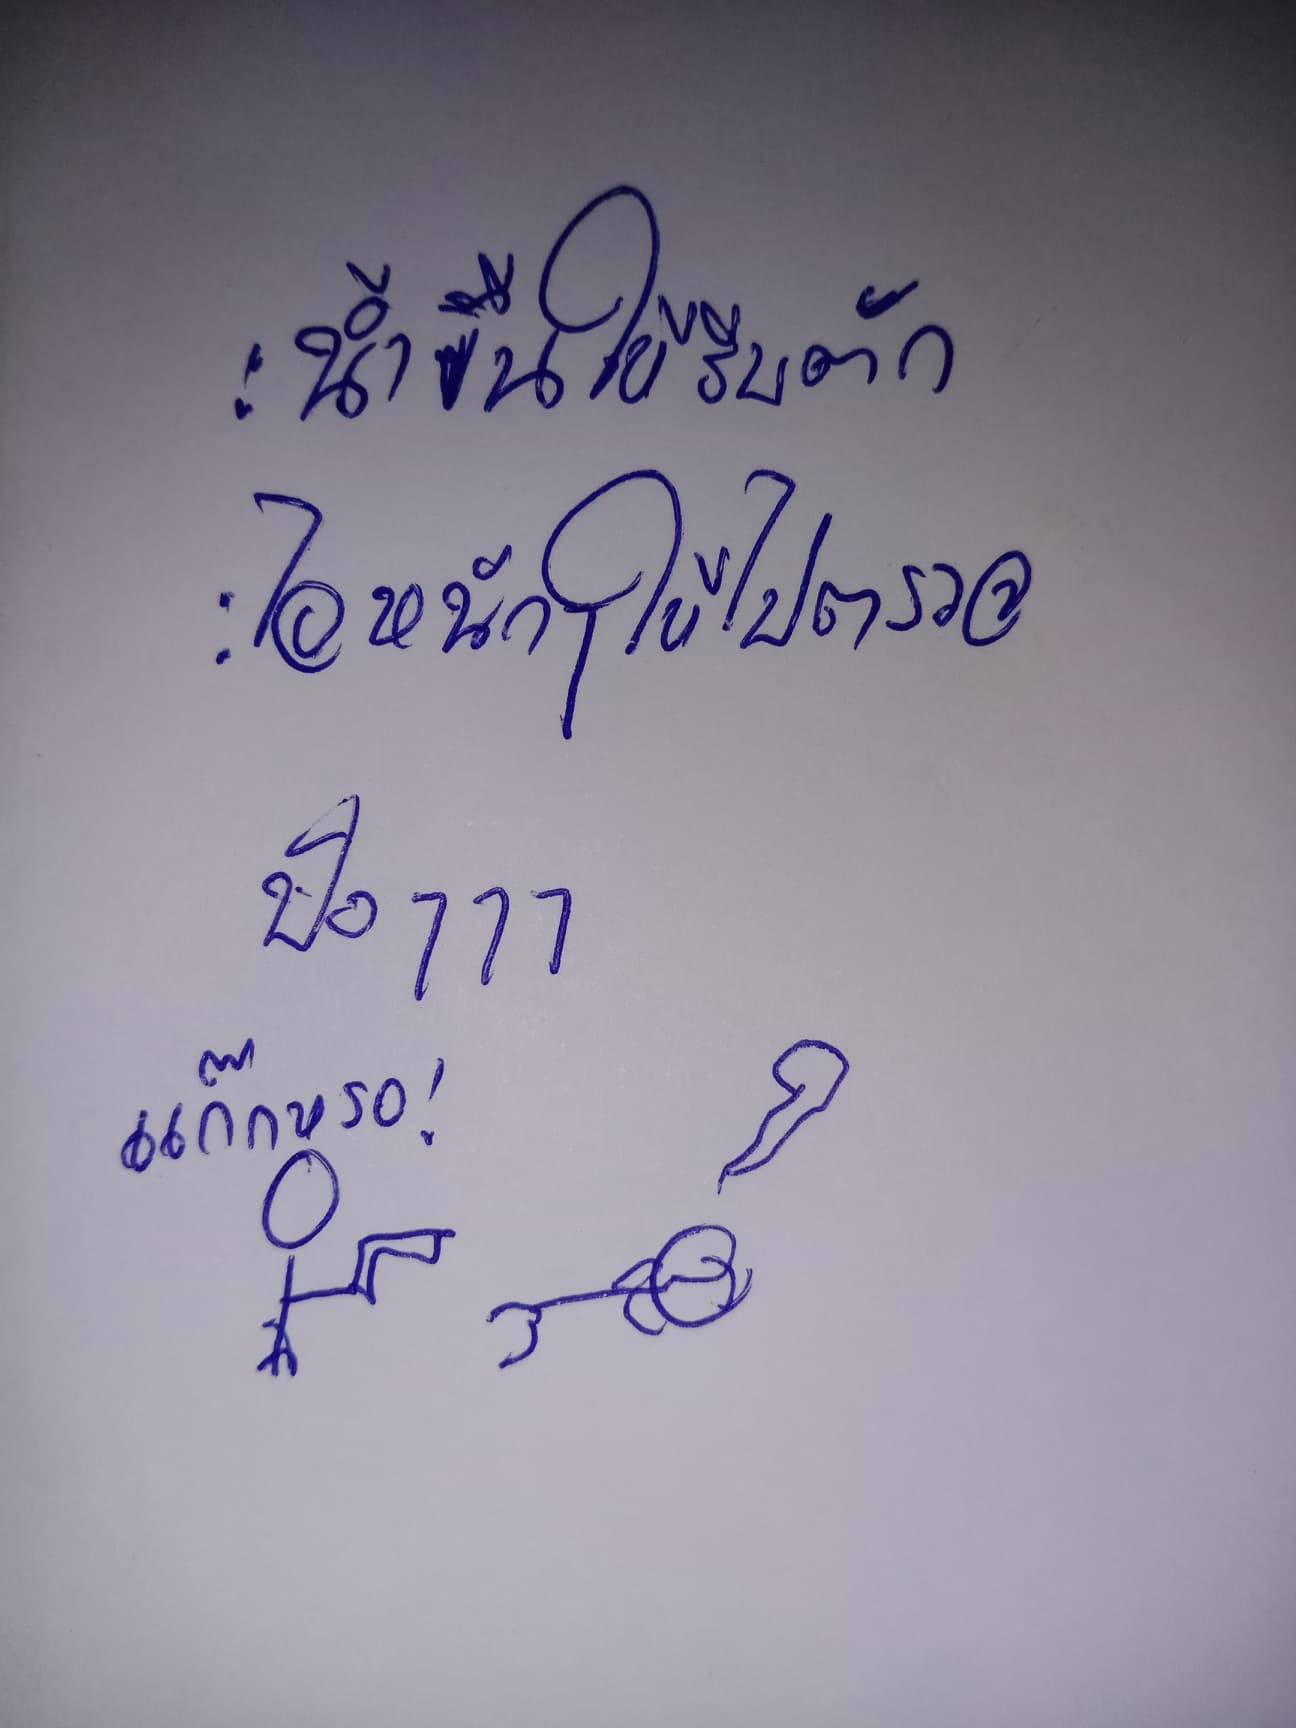 : น้ำขึ้นให้รีบตัก
: ไอหนักๆให้ไปตรวจ
ปัง ๆๆๆ
แก๊กหรอ!